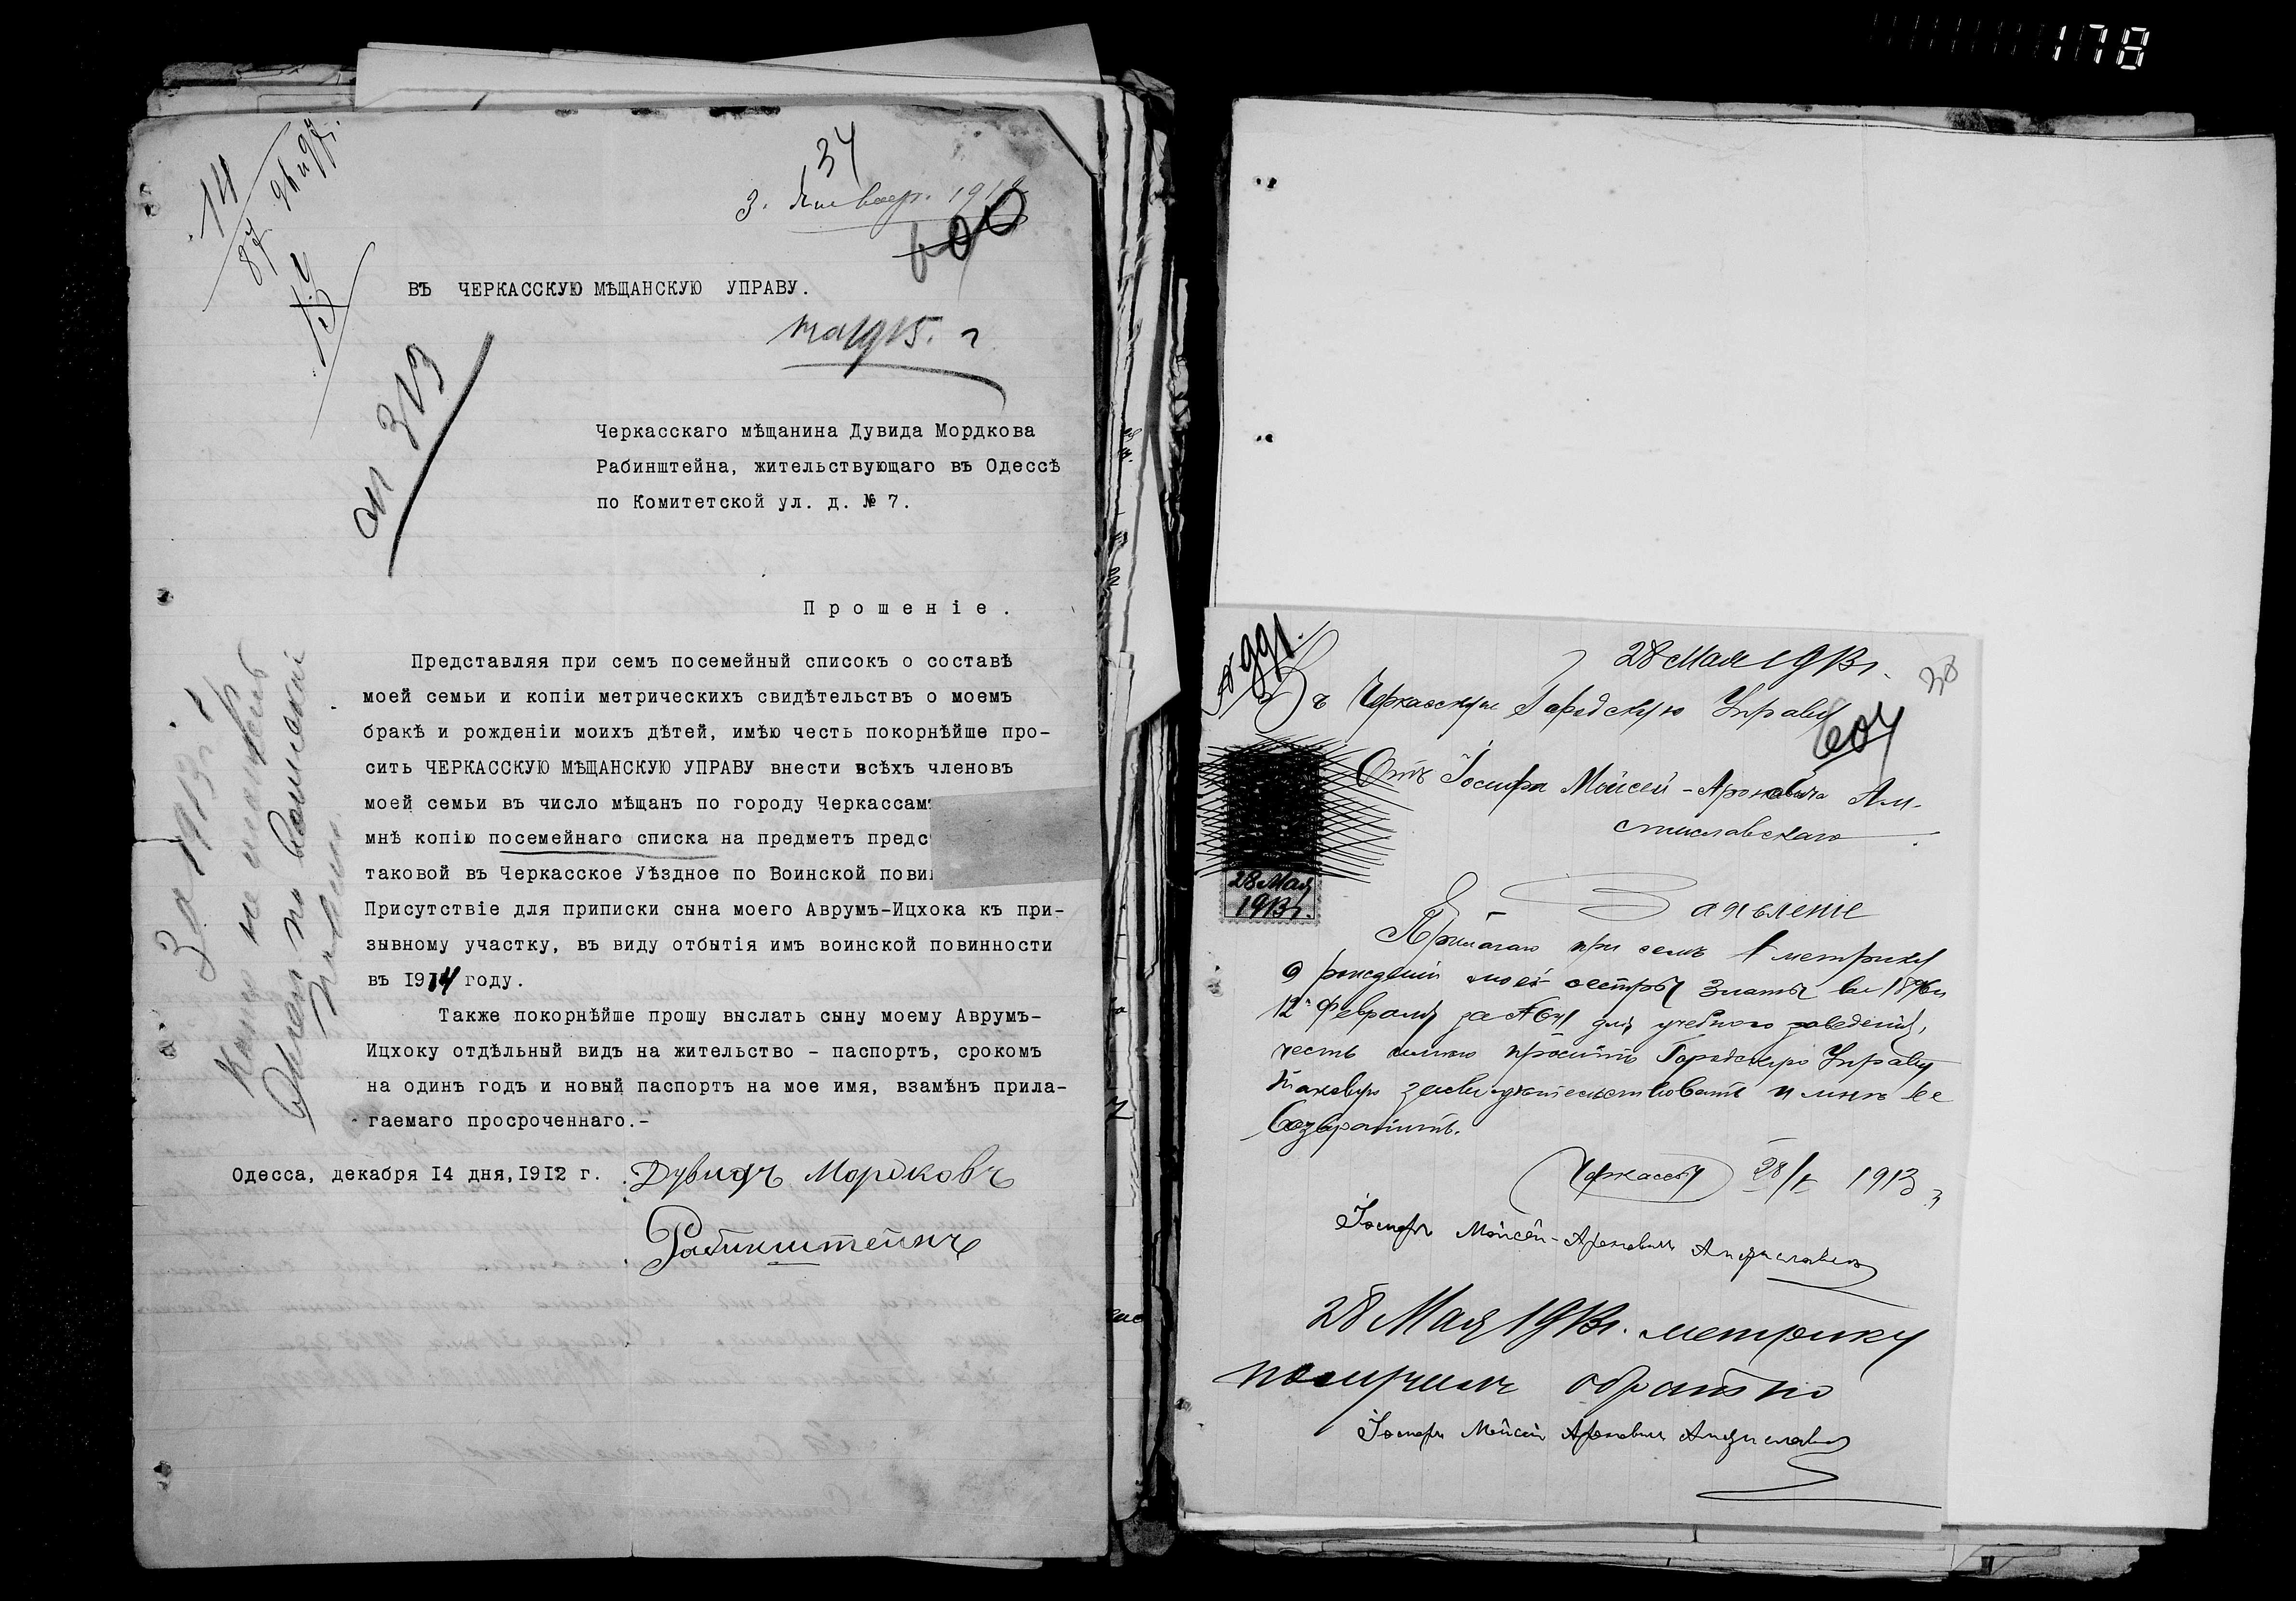 178
34
3. Январ. 1913
600
ВЪ ЧЕРКАССКУЮ МѢЩАНСКУЮ УПРАВУ.
на 1915. г
Черкасскаго мѣщанина Дувида Мордкова
Рабинштейна, жительствующаго въ Одессѣ
по Комитетской ул. д. № 7.
Прошеніе.
Представляя при семъ посемейный списокъ о составѣ
моей семьи и копіи метрическихъ свидѣтельствъ о моемъ
бракѣ и рожденіи моихъ дѣтей, имѣю честь покорнѣйше про-
сить ЧЕРКАССКУЮ МѢЩАНСКУЮ УПРАВУ внести всѣхъ членовъ
моей семьи въ число мѣщанъ по городу Черкассам
мнѣ копію посемейнаго списка на предметъ предс
таковой въ Черкасское Уѣздное по Воинской пови
Присутствіе для приписки сына моего Аврумъ-Ицхока къ при-
зывному участку, въ виду отбытія имъ воинской повинности
въ 1914 году.
Также покорнѣйше прошу выслать сыну моему Аврумъ-
Ицхоку отдѣльный видъ на жительство - паспортъ, срокомъ
на одинъ годъ и новый паспортъ на мое имя, взамѣнъ прила-
гаемаго просроченнаго.-
Одесса, декабря 14 дня, 1912 г. Дувидъ Мордковъ
Рабинштейнъ
28 Мая 1913 г.
38
Въ Черкасскую Городскую Управу
604
Отъ Іосифа Мойсей-Ароновича Ам-
стиславскаго
28 Мая
1913 г.
Заявленіе
Прилагаю при семъ метрику
о рожденіи моей сестры Златы
12 Февраля за № для учебного заведенія,
честь имѣю просить Городскую Управу
таковую засвидѣтельствовать и мнѣ ее
возвратить.
Черкассы 28/V 1913 г
Іосифъ Мойсей-Ароновичъ Амстиславскій
28 Мая 1913 г. метрику
получилъ обратно
Іосифъ Мойсей Ароновичъ Амстиславскій